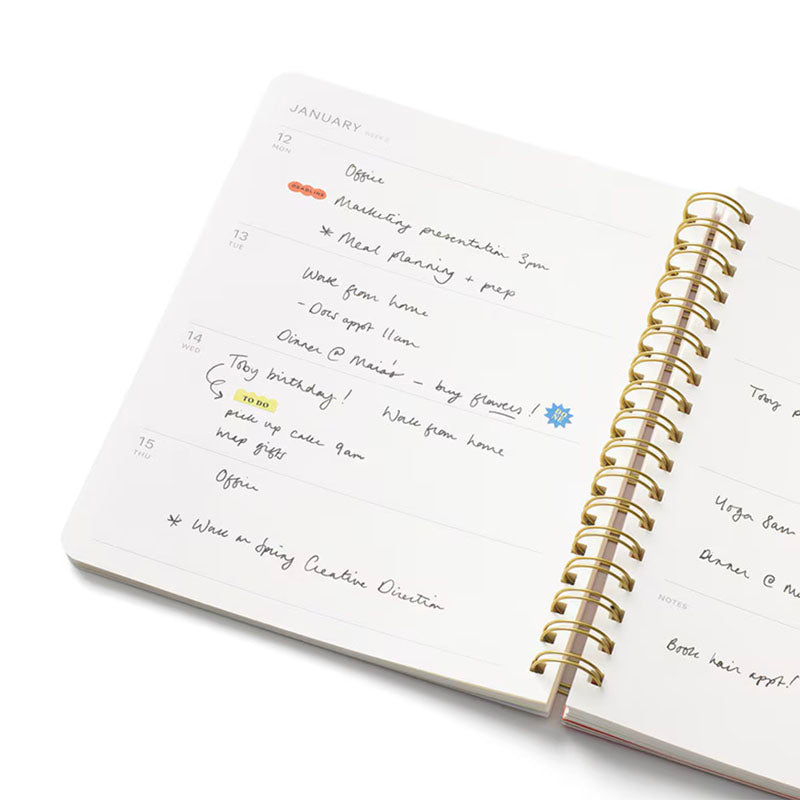 JANUARY WEEK 2
12
MON
Office
DEADLINE
Marketing presentation 3pm
* Meal planning + prep
13
TUE
Work from home
- Docs appt 11am
Dinner @ Maia's - buy flowers!
14
WED
Toby birthday! Work from home
TO DO
pick up cake 9am
wrap gifts
15
THU
Office
* Work on Spring Creative Direction
Toby
Yoga 8am
Dinner @
NOTES
Book hair appt!